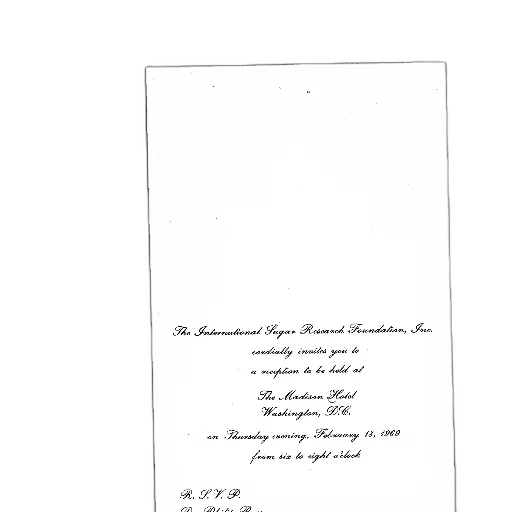 The International Sugar Research Foundation, Inc.
cordially invites you to
a reception to be held at
The Madison Hotel
Washington, D.C.
on Thursday evening, February 13, 1969
from six to eight o'clock
R. S. V. P.